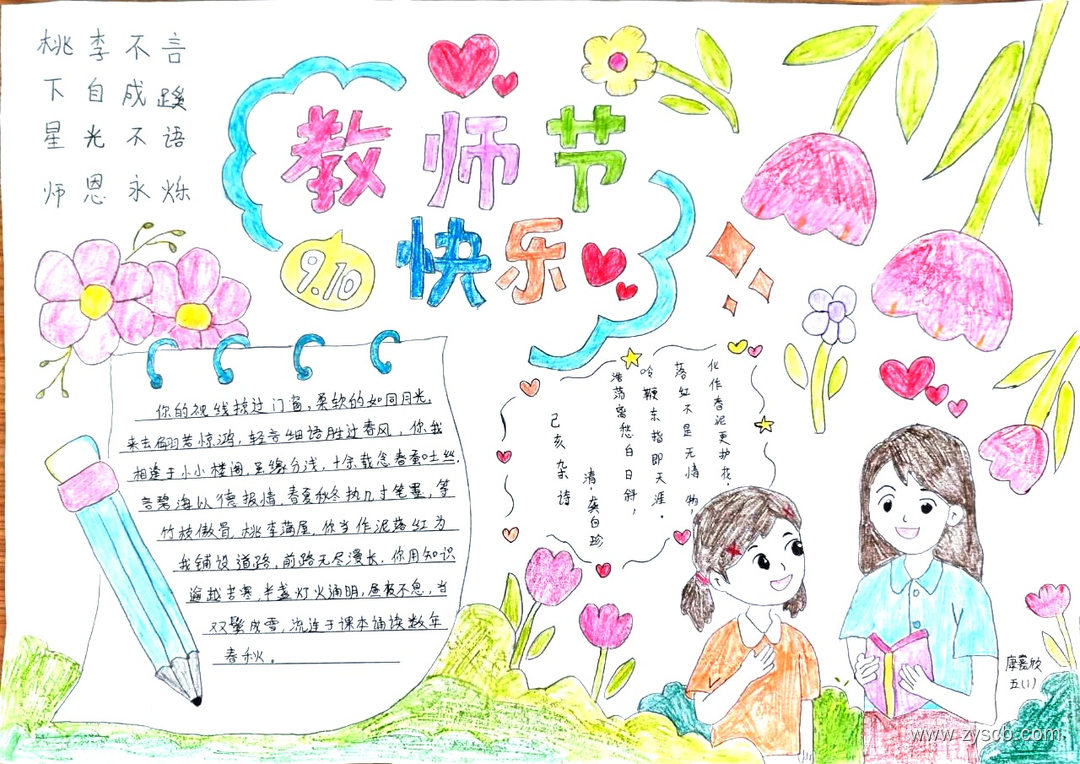 桃李不言
下自成蹊
星光不语
师恩永烁
教师节
快乐
9.10
你的视线掠过门窗,柔软的如同月光,
来去翩若惊鸿,轻言细语胜过春风,你我
相逢于小小楼阁,虽缘分浅,十余载念春蚕吐丝,
以德报情,春夏秋冬执几寸笔墨,等
竹枝傲骨,桃李满屋,你当作泥落红为
我铺设道路,前路无尽漫长,你用知识
遍越苦寒,半盏灯火通明,昼夜不息,当
双鬓成雪,流连于课本诵读数年
春秋。
化作春泥更护花。
落红不是无情物,
吟鞭东指即天涯。
浩荡离愁白日斜,
清·龚自珍
己亥杂诗
五(1)
www.zyscb.com